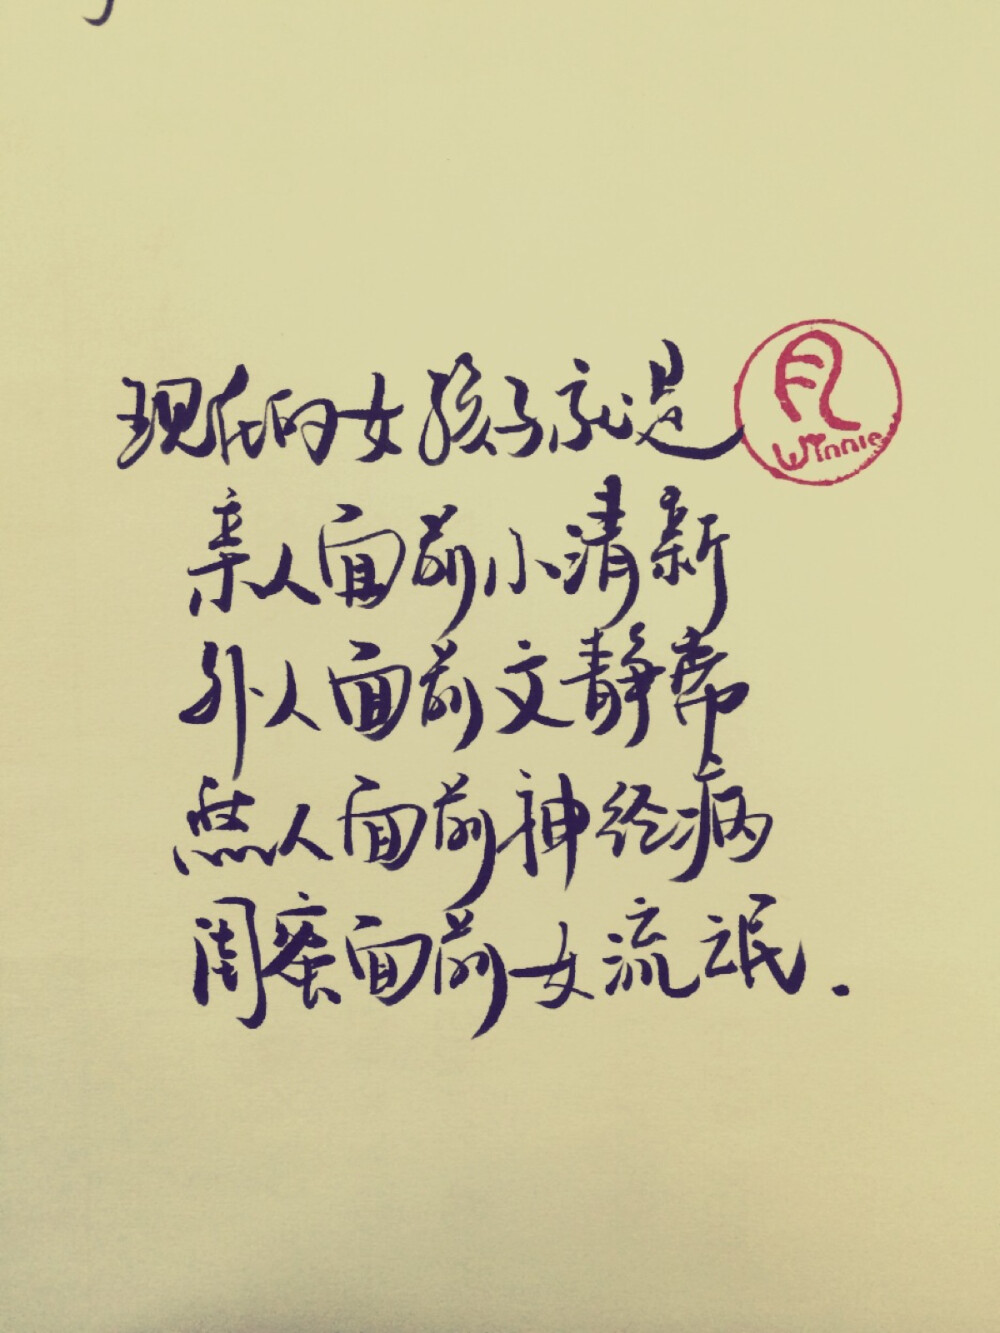 现代的女孩子就是
Winnie
亲人面前小清新
外人面前文静帝
熟人面前神经病
闺蜜面前女流氓.